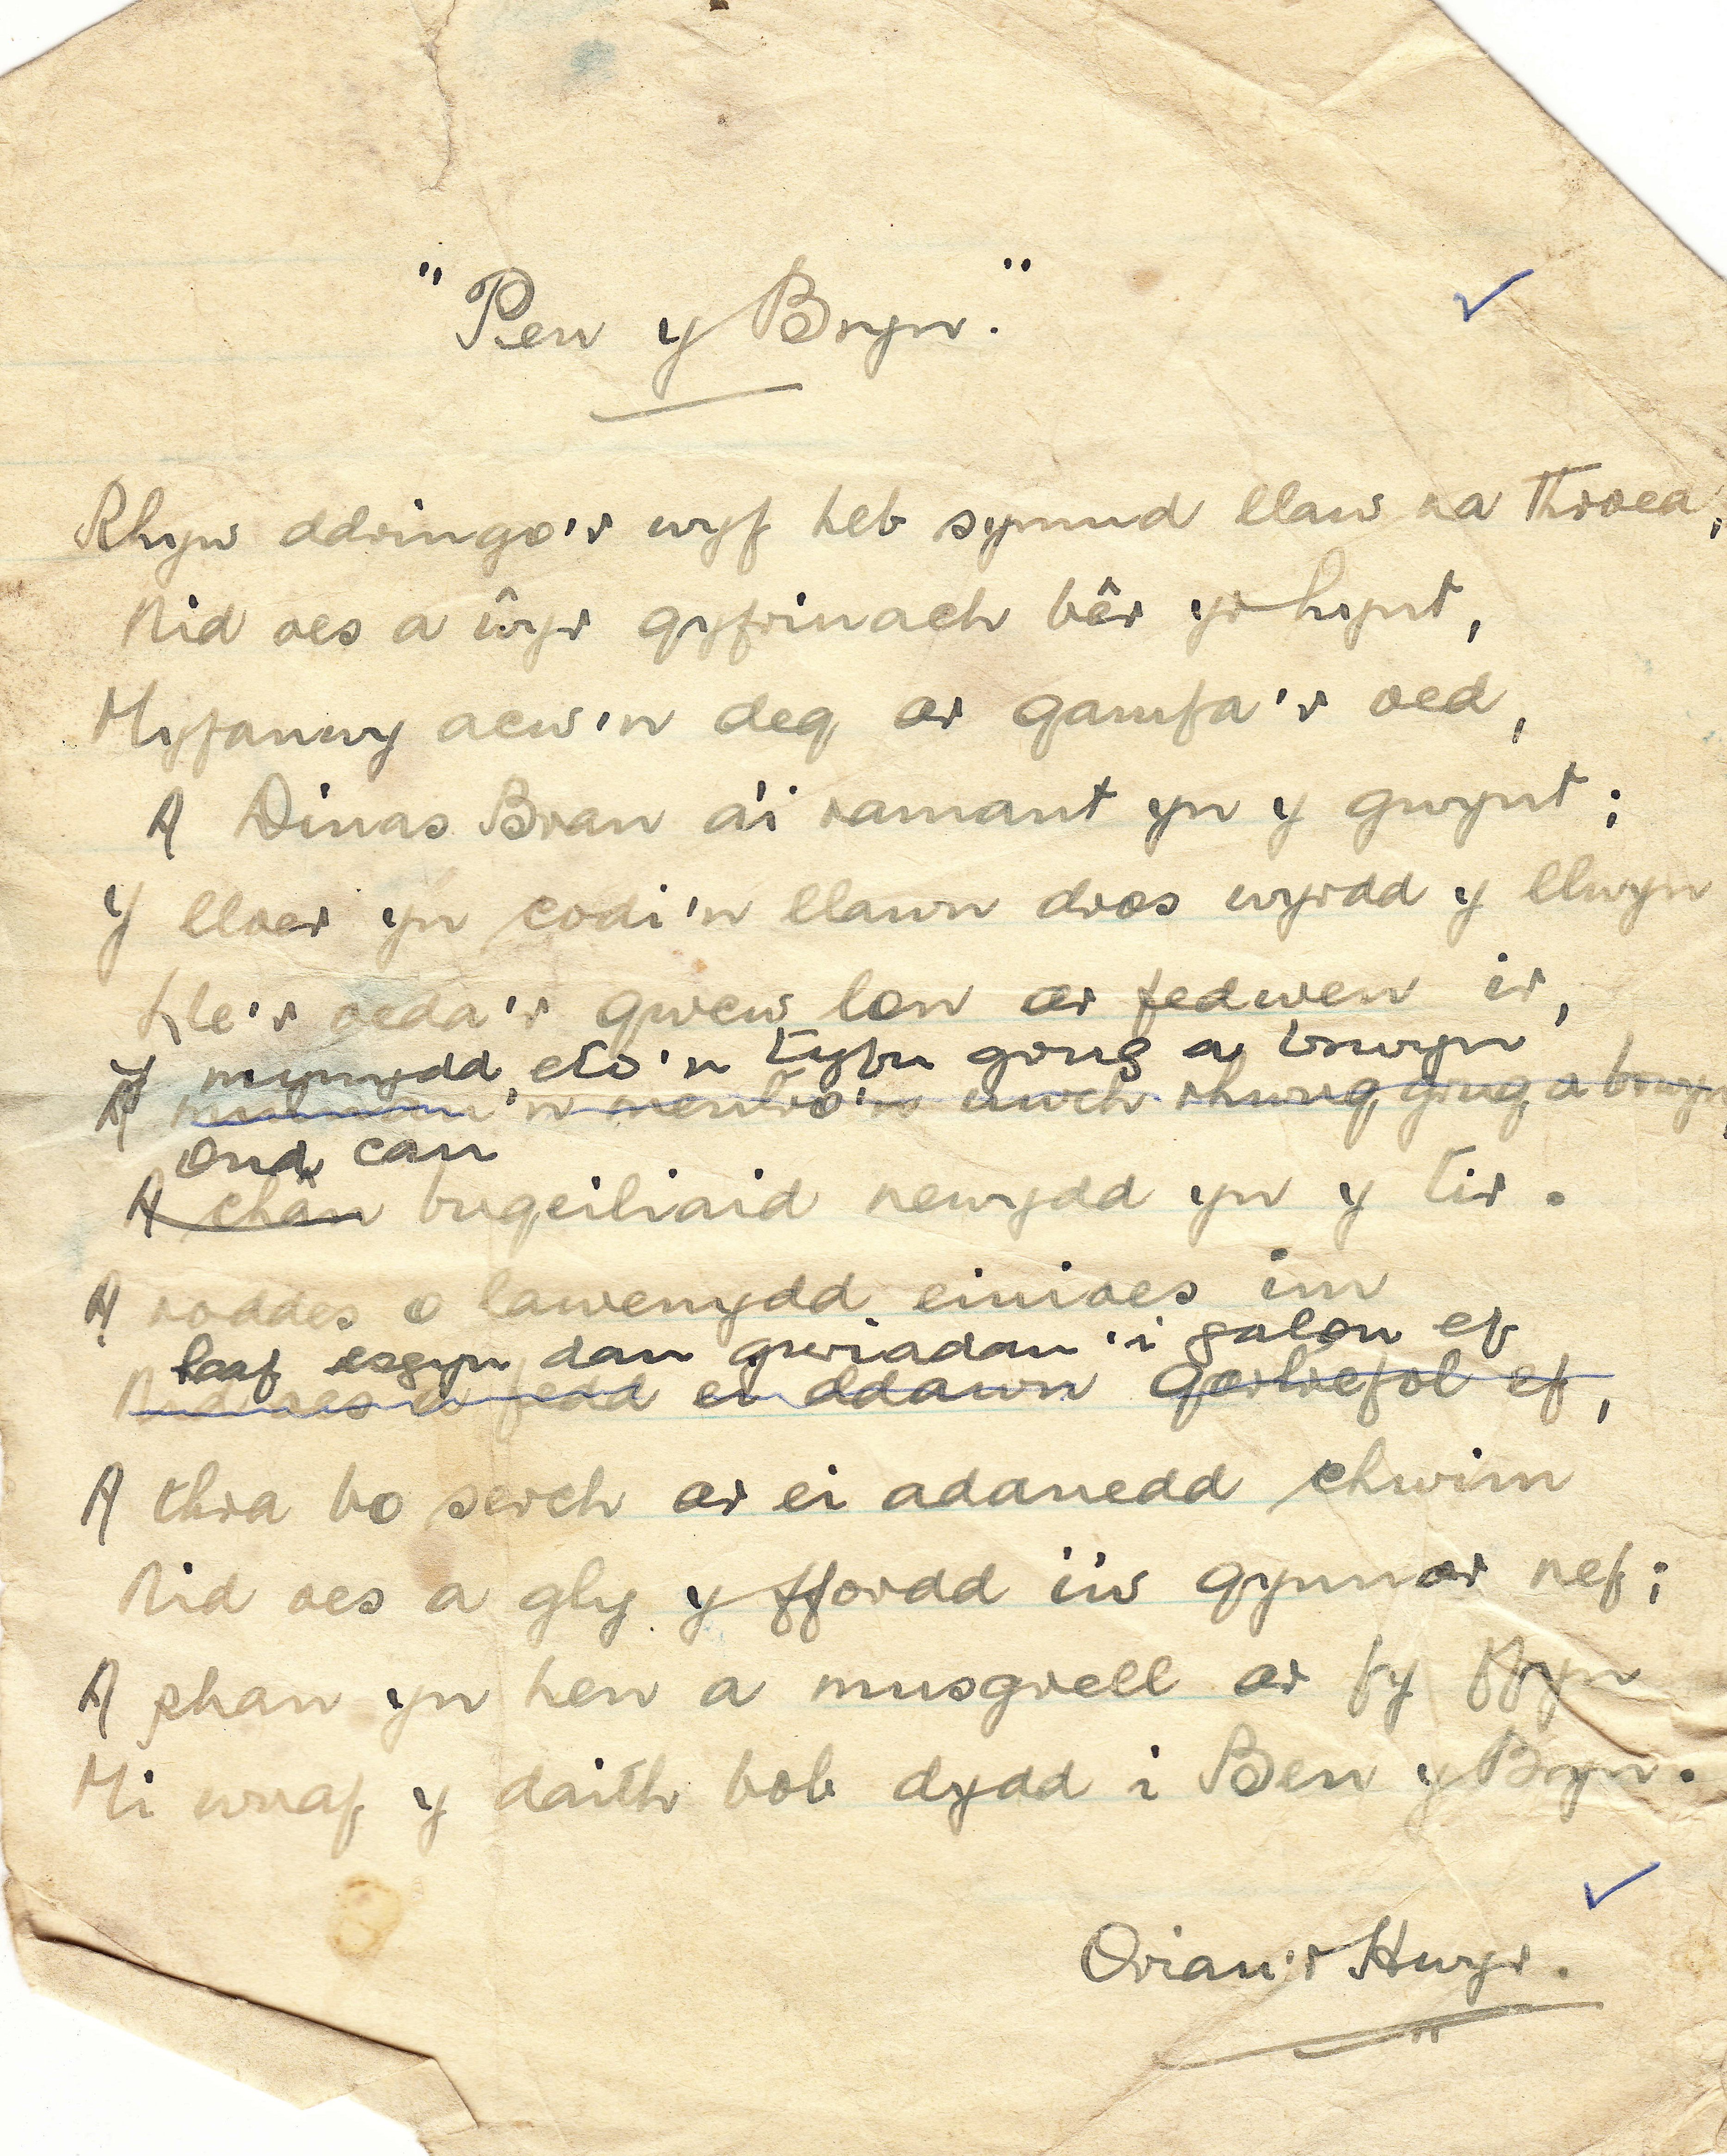 "Pen y Bryn."
Rhyw ddringo'r wyf heb symud llaw na throed,
Nid oes a ŵyr gyfrinach bêr yr hynt,
Myfanwy acw'n deg ar gamfa'r oed,
A Dinas Bran a'i ramant yn y gwynt;
Y lloer yn codi'n llawn dros wyrdd y llwyn
Lle'r oeda'r gwcw lon ar fedwen ir,
Y mynydd eto'n tyfu grug a brwyn
A 'n mentro'n uwch rhwng grug a brwyn,
Ond can
A chân bugeiliaid newydd yn y tir.
A roddes o lawenydd einioes im
laaf esgyn dan gwriadau'i galon ef
Nid oes a fedd ei ddawn gartrefol ef,
A thra bo serch ar ei adanedd chwim
Nid oes a gly y ffordd i'w gynnar nef;
A phan yn hen a musgrell ar fy ffyn
Mi wnaf y daith bob dydd i Ben y Bryn.
Oriau'r Hwyr.